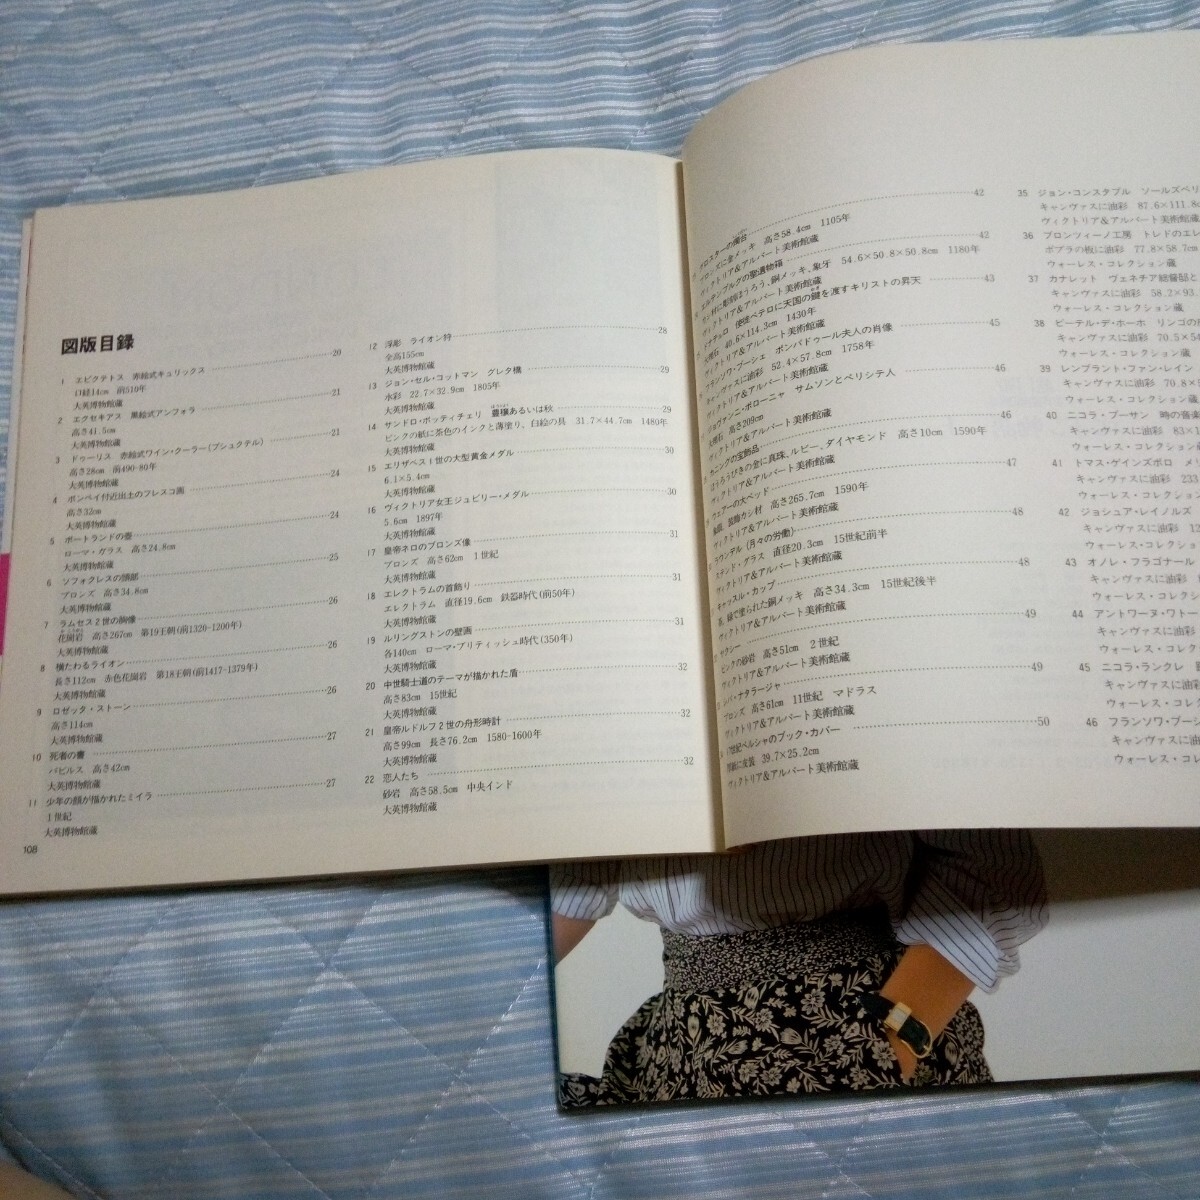 図版目録
1 エピクテトス 赤絵式キュリックス 20
口径14cm 前510年
大英博物館蔵
2 エクセキアス 黒絵式アンフォラ 21
高さ41.5cm
大英博物館蔵
3 ドゥーリス 赤絵式ワイン・クーラー(プシュクテル) 21
高さ28cm 前490-80年
大英博物館蔵
4 ポンペイ付近出土のフレスコ画 24
高さ32cm
大英博物館蔵
5 ポートランドの壺 24
ローマ・グラス 高さ24.8cm
大英博物館蔵
6 ソフォクレスの頭部 25
ブロンズ 高さ34.8cm
大英博物館蔵
7 ラムセス2世の胸像 26
花崗岩 高さ267cm 第19王朝(前1320-1200年)
大英博物館蔵
8 横たわるライオン 26
長さ112cm 赤色花崗岩 第18王朝(前1417-1379年)
大英博物館蔵
9 ロゼッタ・ストーン 26
高さ114cm
大英博物館蔵
10 死者の書 27
パピルス 高さ42cm
大英博物館蔵
11 少年の顔が描かれたミイラ 27
1世紀
大英博物館蔵
108
12 浮彫 ライオン狩 28
全高155cm
大英博物館蔵
13 ジョン・セル・コットマン グレタ橋 29
水彩 22.7×32.9cm 1805年
大英博物館蔵
14 サンドロ・ボッティチェリ 豊穣あるいは秋 29
ピンクの紙に茶色のインクと薄塗り、白絵の具 31.7×44.7cm 1480年
大英博物館蔵
15 エリザベス1世の大型黄金メダル 30
6.1×5.4cm
大英博物館蔵
16 ヴィクトリア女王ジュビリー・メダル 30
5.6cm 1897年
大英博物館蔵
17 皇帝ネロのブロンズ像 31
ブロンズ 高さ62cm 1世紀
大英博物館蔵
18 エレクトラムの首飾り 31
エレクトラム 直径19.6cm 鉄器時代(前50年)
大英博物館蔵
19 ルリングストンの壁画 31
各140cm ローマ・ブリティッシュ時代(350年)
大英博物館蔵
20 中世騎士道のテーマが描かれた盾 32
高さ83cm 15世紀
大英博物館蔵
21 皇帝ルドルフ2世の舟形時計 32
高さ99cm 長さ76.2cm 1580-1600年
大英博物館蔵
22 恋人たち 32
砂岩 高さ58.5cm 中央インド
大英博物館蔵
グロスターの燭台 42
ブロンズに金メッキ 高さ58.4cm 1105年
ヴィクトリア&アルバート美術館蔵
エルテンブルグの聖遺物箱 42
彫刻ほうろう、銅メッキ、象牙 54.6×50.8×50.8cm 1180年
ヴィクトリア&アルバート美術館蔵
ドナテルロ 使徒ペテロに天国の鍵を渡すキリストの昇天 43
大理石 40.6×114.3cm 1430年
ヴィクトリア&アルバート美術館蔵
フランソワ・ブーシェ ポンパドゥール夫人の肖像 45
キャンヴァスに油彩 52.4×57.8cm 1758年
ヴィクトリア&アルバート美術館蔵
ジョヴァンニ・ボローニャ サムソンとペリシテ人 46
大理石 高さ209cm
ヴィクトリア&アルバート美術館蔵
カニングの宝飾品 46
ほうろうびきの金に真珠、ルビー、ダイヤモンド 高さ10cm 1590年
ヴィクトリア&アルバート美術館蔵
ウェアーの大ベッド 47
装飾カシ材 高さ265.7cm 1590年
ヴィクトリア&アルバート美術館蔵
ラウンデル(月々の労働) 48
ステンド・グラス 直径20.3cm 15世紀前半
ヴィクトリア&アルバート美術館蔵
キャッスル・カップ 48
緑で塗られた銅メッキ 高さ34.3cm 15世紀後半
ヴィクトリア&アルバート美術館蔵
ヤクシー 49
ピンクの砂岩 高さ51cm 2世紀
ヴィクトリア&アルバート美術館蔵
シバ・ナタラージャ 49
ブロンズ 高さ61cm 11世紀 マドラス
ヴィクトリア&アルバート美術館蔵
17世紀ペルシャのブック・カバー 50
39.7×25.2cm
ヴィクトリア&アルバート美術館蔵
35 ジョン・コンスタブル ソールズベリ
キャンヴァスに油彩 87.6×111.8c
ヴィクトリア&アルバート美術館蔵
36 ブロンツィーノ工房 トレドのエレ
ポプラの板に油彩 77.8×58.7cm
ウォーレス・コレクション蔵
37 カナレット ヴェネチア総督邸と
キャンヴァスに油彩 58.2×93.
ウォーレス・コレクション蔵
38 ピーテル・デ・ホーホ リンゴの皮
キャンヴァスに油彩 70.5×54
ウォーレス・コレクション蔵
39 レンブラント・ファン・レイン
キャンヴァスに油彩 70.8×
ウォーレス・コレクション蔵
40 ニコラ・プーサン 時の音楽
キャンヴァスに油彩 83×1
ウォーレス・コレクション蔵
41 トマス・ゲインズボロ メリ
キャンヴァスに油彩 233
ウォーレス・コレクション
42 ジョシュア・レイノルズ
キャンヴァスに油彩 1
ウォーレス・コレクショ
43 オノレ・フラゴナール
キャンヴァスに油彩
ウォーレス・コレクショ
44 アントワーヌ・ワトー
キャンヴァスに油彩
ウォーレス・コレク
45 ニコラ・ランクレ
キャンヴァスに油彩
ウォーレス・コレク
46 フランソワ・ブーシ
キャンヴァスに油彩
ウォーレス・コレ